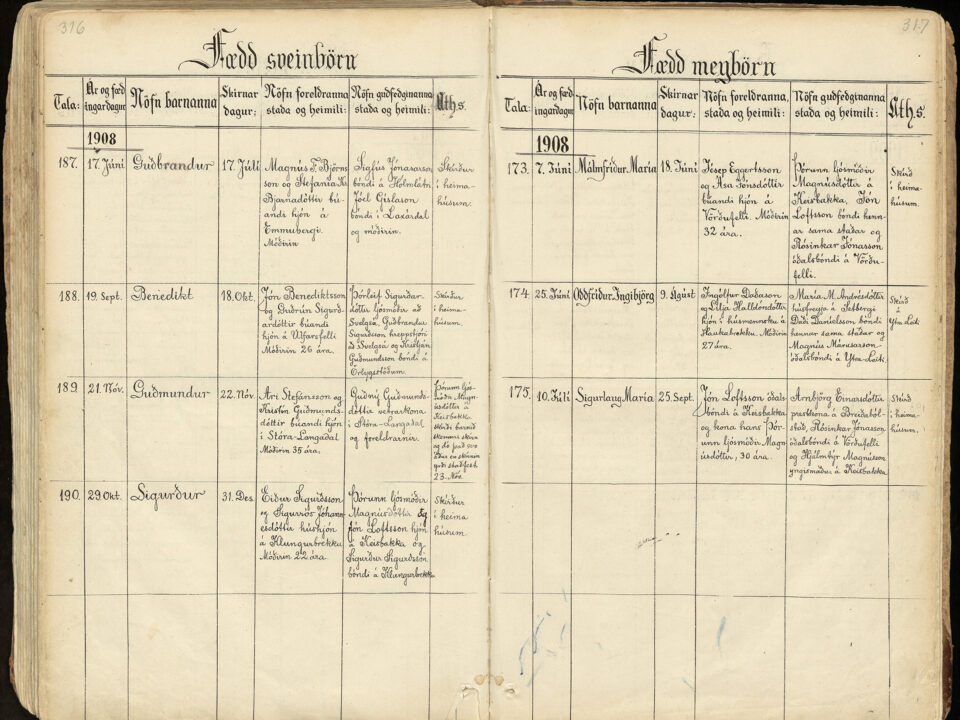 316
Fædd sveinbörn
Tala:
Ár og fæð
ingardagur
Nöfn barnanna
Skirnar
dagur:
Nöfn foreldranna,
staða og heimili:
Nöfn guðfeðginanna
staða og heimili:
Aths.
1908
187.
17 Júní
Guðbrandur
17 Júlí
Magnús F. Björns
son og Stefanía Kr
Bjarnadóttir bú-
andi hjón á
Emmubergi.
Móðirin
Sigfús Jónasarson
bóndi á Hólmlátri
Jóel Gíslason
bóndi í Laxárdal
og móðirin.
Skírður
í heima-
húsum.
188.
19. Sept.
Benedikt
18. Okt.
Jón Benediktsson
og Guðrún Sigurð-
ardóttir búandi
hjón á Úlfarsfelli
Móðirin 26 ára.
Þórleif Sigurðar-
dóttir ljósmóðir að
Svelgsá, Guðbrandur
Sigurðsson hreppstjóri
að Svelgsá og Kristján
Guðmundsson bóndi á
Örlygsstöðum.
Skírður
í heima-
húsum.
189.
21. Nóv.
Guðmundur
22. Nóv.
Ari Stefánsson og
Kristín Guðmunds-
dóttir búandi hjón
í Stóra-Langadal
Móðirin 35 ára.
Guðný Guðmunds-
dóttir vetrarkona
í Stóra-Langadal
og foreldrarnir.
Þórunn Ljós-
móðir Magnús-
dóttir á
Keisbakka
skírði barnið
skemmri skírn
og dó það svo
áður en skírnin
yrði staðfest
23. Nóv.
190.
29. Okt.
Sigurður
31. Des.
Eiður Sigurðsson
og Sigurrós Jóhann-
esdóttir húshjón
á Klungurbrekku
Móðirin 22 ára
Þórunn ljósmóðir
Magnúsdóttir og
Jón Loftsson hjón
á Keisbakka og
Sigurður Sigurðsson
bóndi á Klungurbrekku
Skírður
í heima
húsum.
317
Fædd meybörn
Tala:
Ár og fæð
ingardagur
Nöfn barnanna
Skirnar
dagur:
Nöfn foreldranna,
staða og heimili:
Nöfn guðfeðginanna
staða og heimili:
Aths.
1908
173.
7. Júní
Málmfríður María
18. Júní
Jósep Eggertsson
og Ása Jónsdóttir
búandi hjón á
Vörðufelli. Móðirin
32 ára.
Þórunn ljósmóðir
Magnúsdóttir á
Keisbakka, Jón
Loftsson bóndi henn-
ar sama staðar og
Rósinkar Jónasson
óðalsbóndi á Vörðu-
felli.
Skírð
í heima
húsum.
174
25. Júní
Oddfríður Ingibjörg
9. Ágúst
Ingólfur Daðason
og Lilja Halldórsdóttir
hjón í húsmennsku á
Haukabrekku. Móðirin
27 ára.
María M. Andrésdóttir
húsfreyja á Setbergi
Daði Daníelsson bóndi
hennar sama staðar og
Magnús Márusarson-
óðalsbóndi á Ytra-Leiti.
Skírð
á
Ytra Leiti
175.
10. Júlí
Sigurlaug María
25. Sept.
Jón Loftsson óðals
bóndi á Keisbakka
og kona hans Þór-
unn ljósmóðir Magn
úsdóttir, 30 ára.
Arnbjörg Einarsdóttir
prestkona á Breiðaból-
stað, Rósinkar Jónasson
óðalsbóndi á Vörðufelli
og Hjálmtýr Magnússon
yngismaður á Keisbakka.
Skírð
í heima-
húsum.